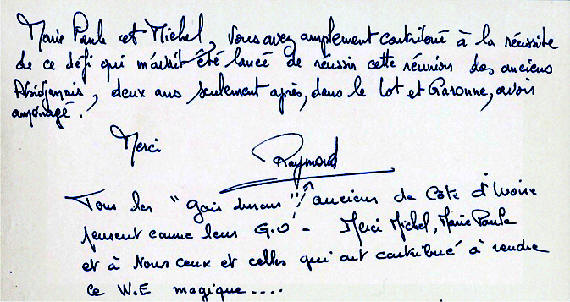 Marie Paule et Michel, Vous avez amplement contribué à la réussite
de ce défi qui m'avait été lancé de réussir cette réunion des anciens
Abidjanais, deux ans seulement après, dans le Lot et Garonne, avoir
aménagé.
Merci
Raymond
Tous les "gais lurons" anciens de Côte d'Ivoire
pensent comme leur G.O - Merci Michel, Marie Paule
et à tous ceux et celles qui ont contribué à rendre
ce W.E magique....